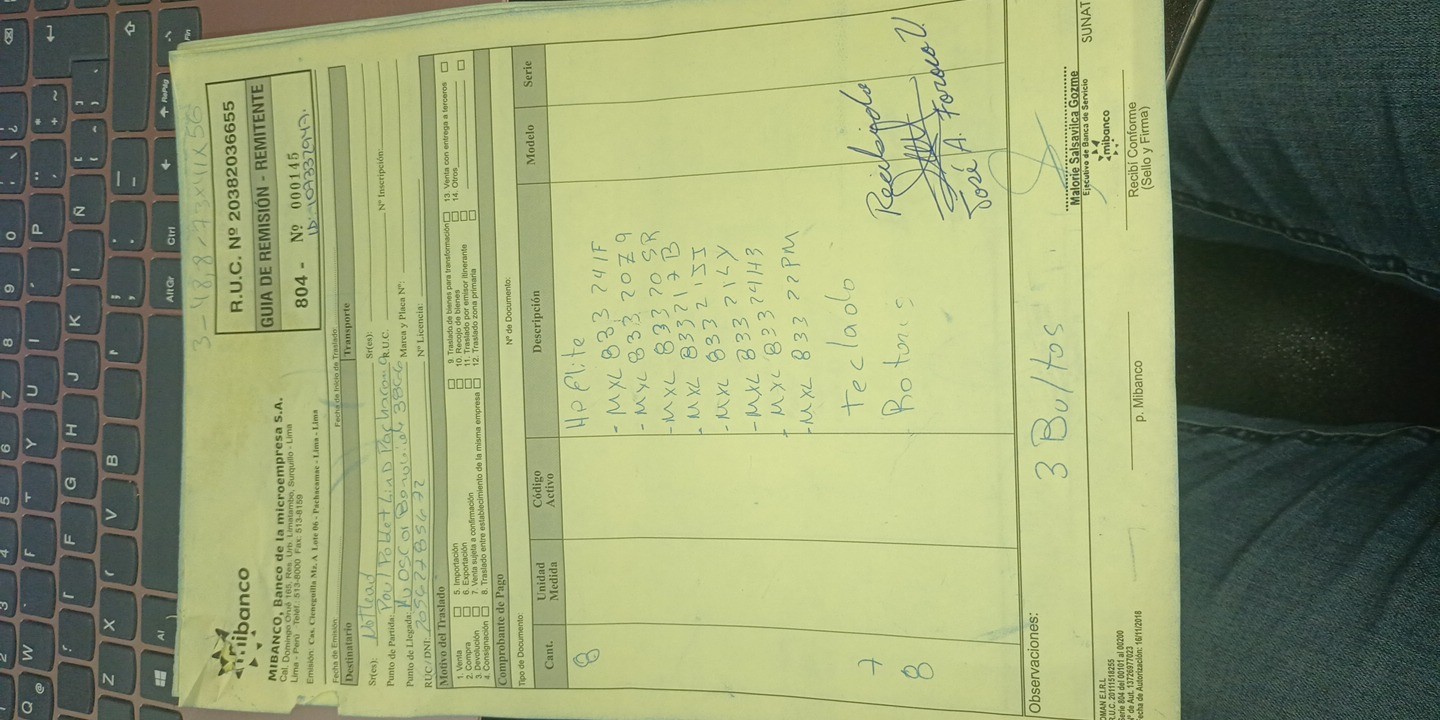 mibanco
MIBANCO, Banco de la microempresa S.A.
Cal. Domingo Orué 165, Res. Urb. Limatambo, Surquillo - Lima
Lima - Perú Telef.: 513-8000 Fax: 513-8159
Emisión: Cas. Cieneguilla Mz. A Lote 06 - Pachacamac - Lima - Lima
R.U.C. Nº 20382036655
GUIA DE REMISIÓN - REMITENTE
804 - Nº 000145
Fecha de Emisión: Fecha de Inicio de Traslado:
Destinatario Transporte
Sr(es): Sr(es):
Punto de Partida: R.U.C. Nº Inscripción:
Punto de Llegada: Marca y Placa Nº:
RUC / DNI: Nº Licencia:
Motivo del Traslado
1. Venta 5. Importación 9. Traslado de bienes para transformación 13. Venta con entrega a terceros
2. Compra 6. Exportación 10. Recojo de bienes 14. Otros
3. Devolución 7. Venta sujeta a confirmación 11. Traslado por emisor itinerante
4. Consignación 8. Traslado entre establecimiento de la misma empresa 12. Traslado zona primaria
Comprobante de Pago
Tipo de Documento: Nº de Documento:
Cant. Unidad Medida Código Activo Descripción Modelo Serie
8 HP Elite
- MXL 833 241F
- MXL 833 20Z9
- MXL 833 20SR
- MXL 833 217B
- MXL 833 215J
- MXL 833 21LY
- MXL 833 24H3
- MXL 833 22PM
7 Teclado
8
Recibido
José A.
Observaciones: 3 Bultos
Malorie Salsavilca Gozme
Ejecutivo de Banca de Servicio
mibanco
SUNAT
p. Mibanco
Recibí Conforme
(Sello y Firma)
R.U.C. 20111518255
Serie 804 del 00101 al 00200
Nº de Aut. 1372697023
Fecha de Autorización: 16/11/2018